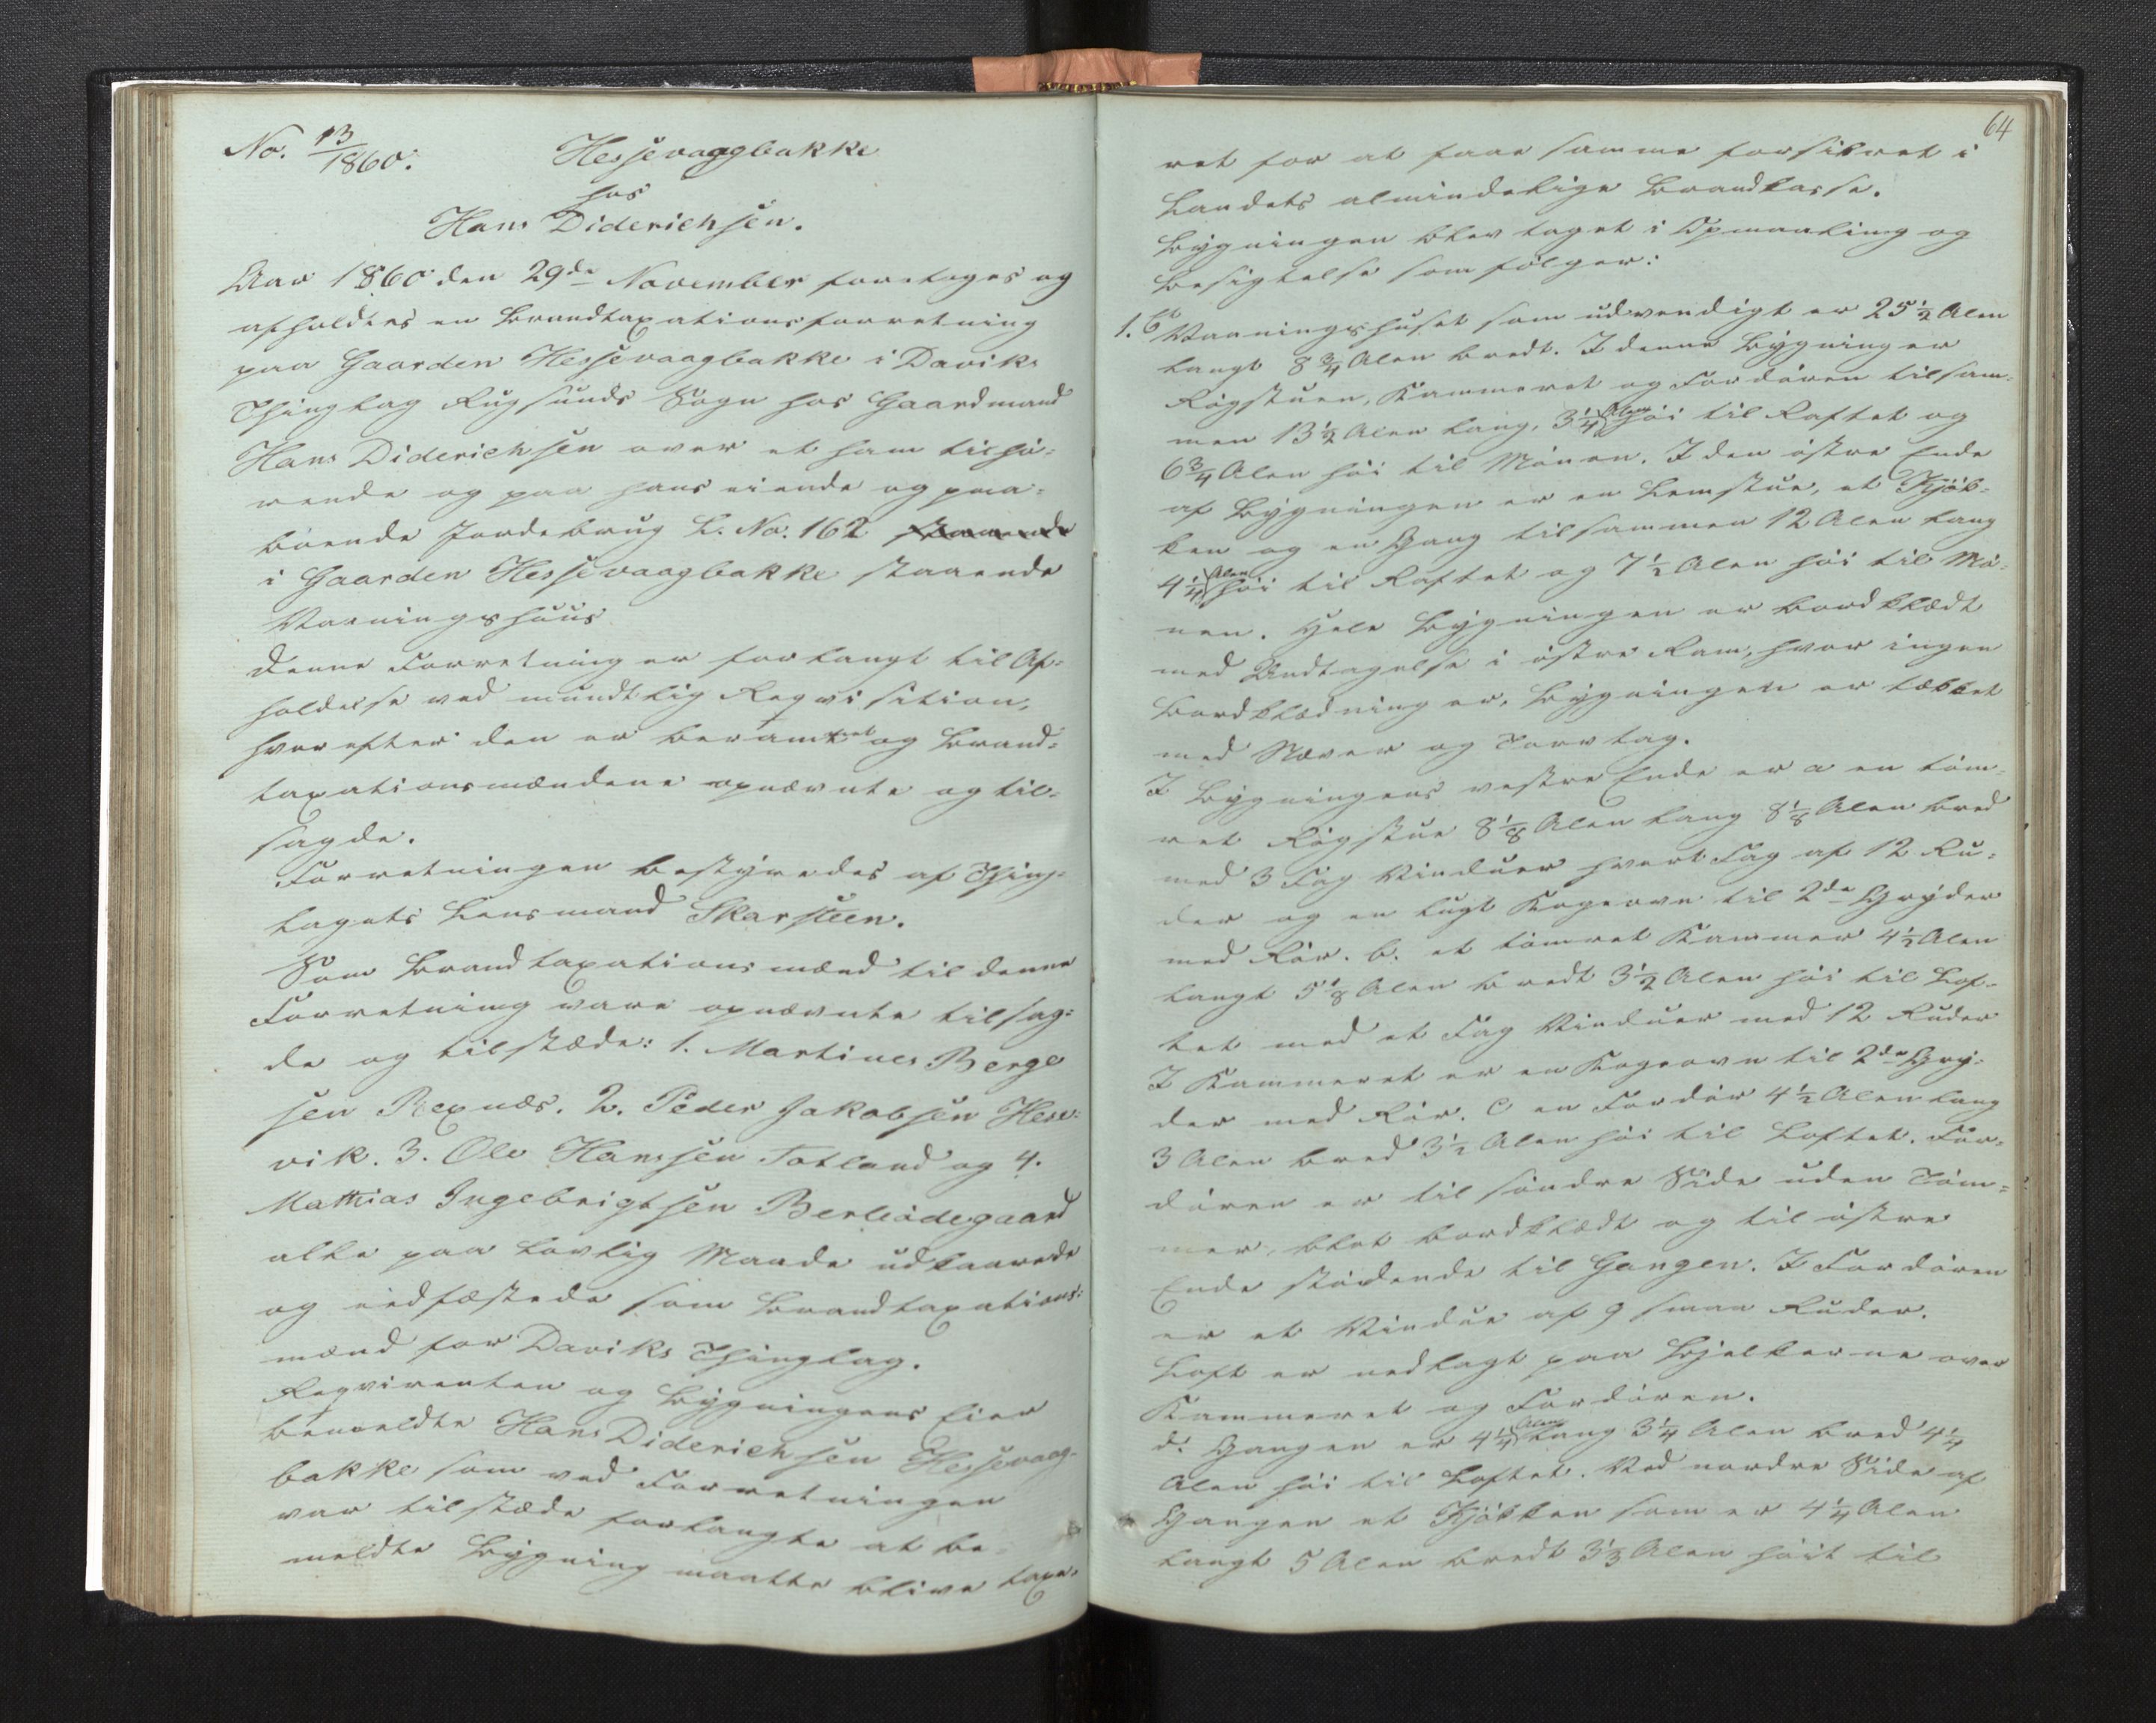 No. 13/1860. Hessevaagbakke
hos
Hans Diderichsen.
Aar 1860 den 29de November foretoges og
afholdtes en Brandtaxationsforretning
paa Gaarden Hessevaagbakke i Daviks
Thinglag Rugsunds Sogn hos Gaardmand
Hans Diderichsen over et ham tilhö-
rende og paa hans eiende og paa-
boende Jordebrug L. No. 162 staaende
i Gaarden Hessevaagbakke staaende
Vaaningshuus
Denne Forretning er forlangt til Af-
holdelse ved mundtlig Reqvisition,
hvorefter den er berammet og Brand-
taxationsmændene opnævnte og til-
sagde.
Forretningen bestyredes af Thing-
lagets Lensmand Skarsteen.
Som Brandtaxationsmænd til denne
Forretning vare opnævnte tilsag-
de og tilstæde: 1. Martines Berge
sen Rexnæs. 2. Peder Jakobsen Hese-
vik. 3. Ole Hanssen Totland og 4.
Mathias Ingebrigtsen Berleödegaard
alle paa lovlig Maade udkaarede
og eedfæstede som Brandtaxations-
mænd for Daviks Thinglag.
Reqvirenten og Bygningens Eier
bemeldte Hans Diderichsen Hessevaag-
bakke som ved Forretningen
var tilstæde forlangte at be-
meldte Bygning maatte blive taxe-
64
ret for at faae samme forsikret i
Landets almindelige Brandkasse.
Bygningen blev taget i Opmaaling og
Besigtelse som fölger:
1. Vaaningshuset som udvendigt er 25½ Alen
langt 8¾ Alen bredt. I denne Bygning er
Rögstuen, Kammeret og Fordören tilsam-
men 13½ Alen lang, 3¼ Alen höi til Raftet og
6¾ Alen höi til Mönen. I den östre Ende
af Bygningen er en Lemstue, et Kjök-
ken og en Gang tilsammen 12 Alen lang
4¼ Alen höi til Raftet og 7½ Alen höi til Mö-
nen. Hele Bygningen er bordklædt
med Undtagelse i östre Ram, hvor ingen
Bordklædning er. Bygningen er tækket
med Næver og Torvtag.
I Bygningens vestre Ende er a en töm-
ret Rögstue 8⅛ Alen lang 8⅛ Alen bred
med 3 Fag Vinduer hvert Fag af 12 Ru-
der og en lugt Kogeovn til 2de Gryder
med Rör. b. et tömret Kammer 4½ Alen
langt 5⅛ Alen bredt 3½ Alen höi til Lof-
tet med et Fag Vinduer med 12 Ruder
I Kammeret er en Kogeovn til 2de Gry-
der med Rör. C en Fordör 4½ Alen lang
3 Alen bred 3½ Alen höi til Loftet. For-
dören er til söndre Side uden Töm-
mer, blot bordklædt og til östre
Ende stödende til Gangen. I Fordören
er et Vindue af 9 smaa Ruder.
Loft er nedlagt paa Bjelkerne over
Kammeret og Fordören.
d. Gangen er 4¼ Alen lang 3¼ Alen bred 4¼
Alen höi til Loftet. Ved nordre Side af
Gangen et Kjökken som er 4¼ Alen
langt 5 Alen bredt 3⅓ Alen höit til